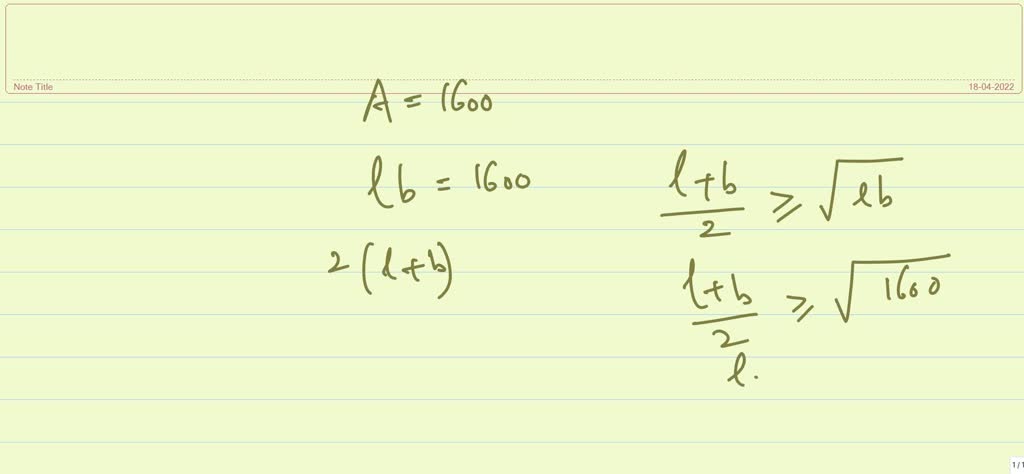 Note Title
18-04-2022
A = 1600
lb = 1600
2(l+b)
(l+b)/2 ≥ √(lb)
(l+b)/2 ≥ √1600
l.
1/1